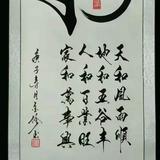 天和風雨順
地和五谷丰
人和百業旺
家和萬事興
庚子